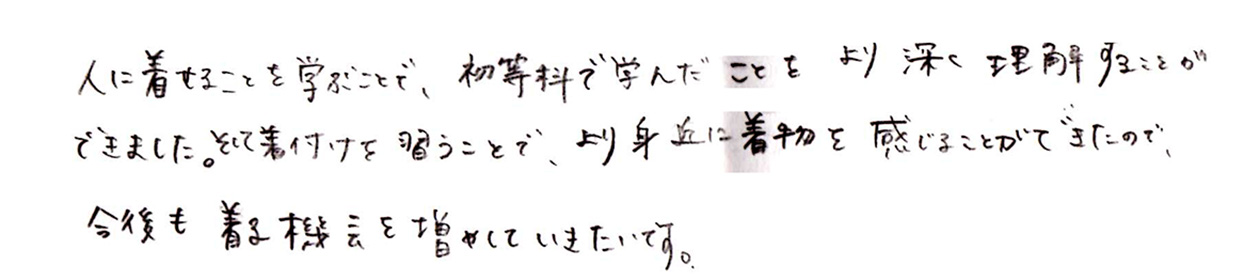 人に着せることを学ぶことで、初等科で学んだことをより深く理解することが
できました。そして着付けを習うことで、より身近に着物を感じることができたので、
今後も着る機会を増やしていきたいです。